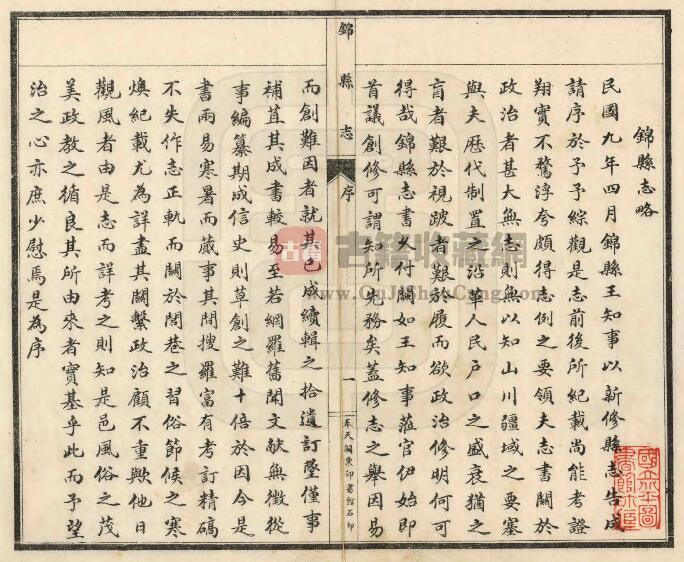 錦縣志略
民國九年四月錦縣王知事以新修縣志告成
請序於予予綜觀是志前後所紀載尚能考證
翔實不鶩浮夸頗得志例之要領夫志書關於
政治者甚大無志則無以知山川疆域之要塞
與夫歷代制置之沿革人民戶口之盛衰猶之
盲者艱於視跛者艱於履而欲政治修明何可
得哉錦縣志書久付闕如王知事蒞官伊始即
首議創修可謂知所先務矣蓋修志之舉因易
錦縣志 序 一 奉天關東印書館石印
而創難因者就其已成續輯之拾遺訂墜僅事
補苴其成書較易至若網羅舊聞文獻無徵從
事編纂期成信史則草創之難十倍於因今是
書兩易寒暑而蕆事其間搜羅富有考訂精碻
不失作志正軌而關於閭巷之習俗節候之寒
燠紀載尤為詳盡其關繫政治顧不重歟他日
觀風者由是志而詳考之則知是邑風俗之茂
美政教之循良其所由來者實基乎此而予望
治之心亦庶少慰焉是為序
古籍
古籍收藏網
www.GuJiShouCang.com